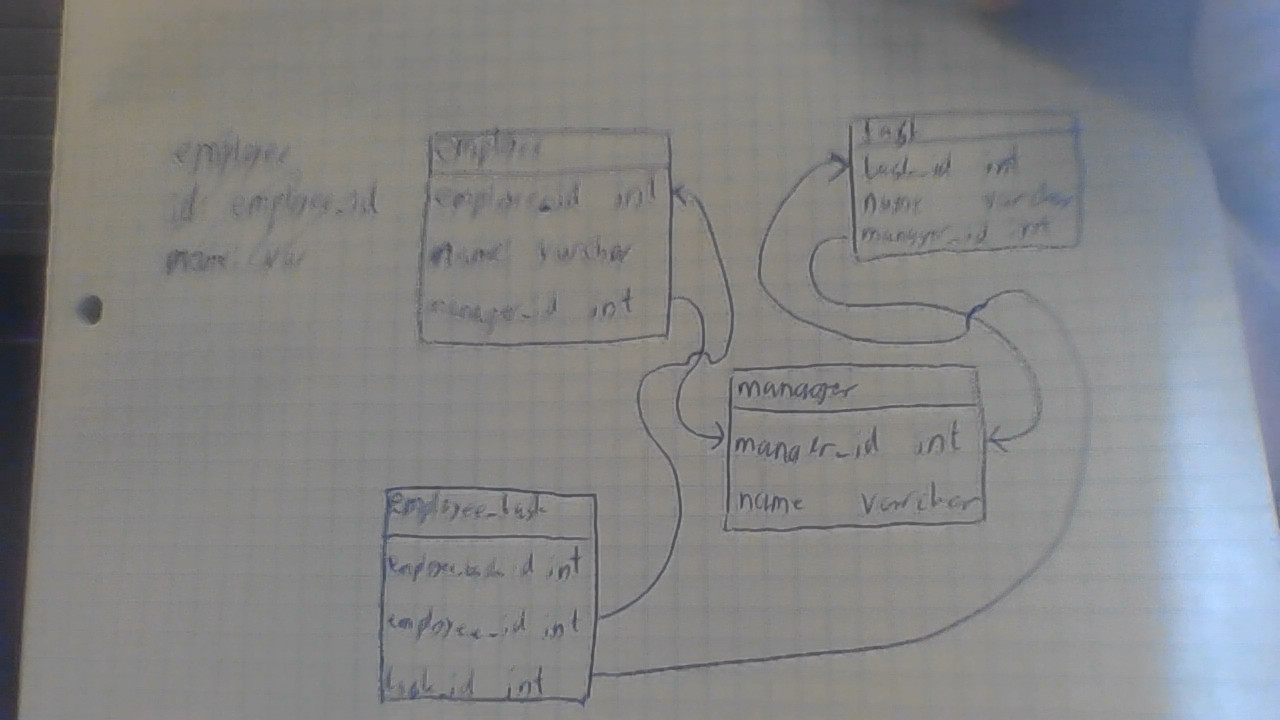 employee
id employee_id
name var
employee
employee_id int
name varchar
manager_id int
task
task_id int
name varchar
manager_id int
manager
manager_id int
name varchar
employee_task
id int
employee_id int
task_id int